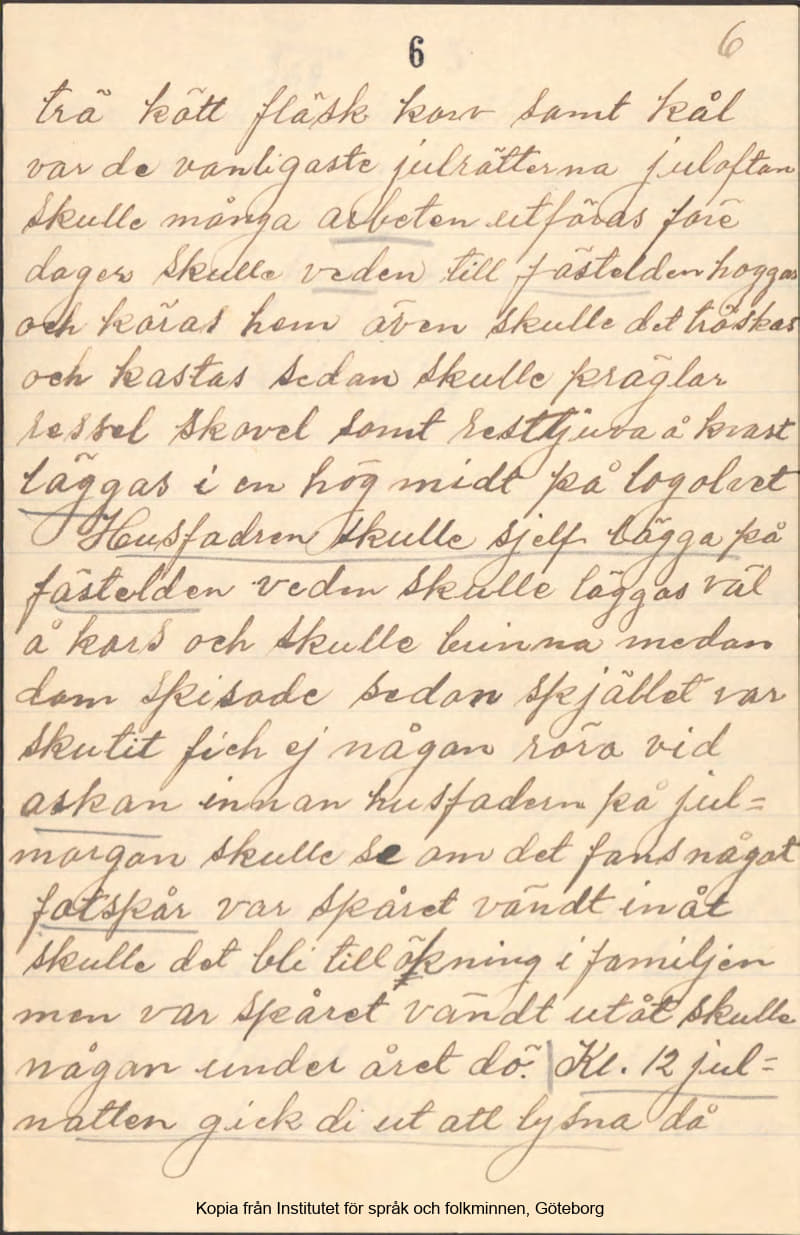 6 6
trä kött fläsk korv samt kål
var de vanligaste julrätterna juloftan
skulle många arbeten utföras före
dager skulle veden till fästelden huggas
och köras hem även skulle det tröskas
och kastas sedan skulle präglar
ressel skovel samt resttjuva å kvast
läggas i en hög midt på logolvet
Husfadren skulle sjelf lägga på
fästelden veden skulle läggas väl
å kors och skulle brinna medan
dom spisade sedan spjället var
skutit fich ej någon röra vid
askan innan husfadern på jul=
morgon skulle se om det fans något
fotspår var spåret vändt inåt
skulle det bli tillökning i familjen
men var spåret vändt utåt skulle
någon under året dö. Kl. 12 jul=
natten gick di ut att lysna då
Kopia från Institutet för språk och folkminnen, Göteborg